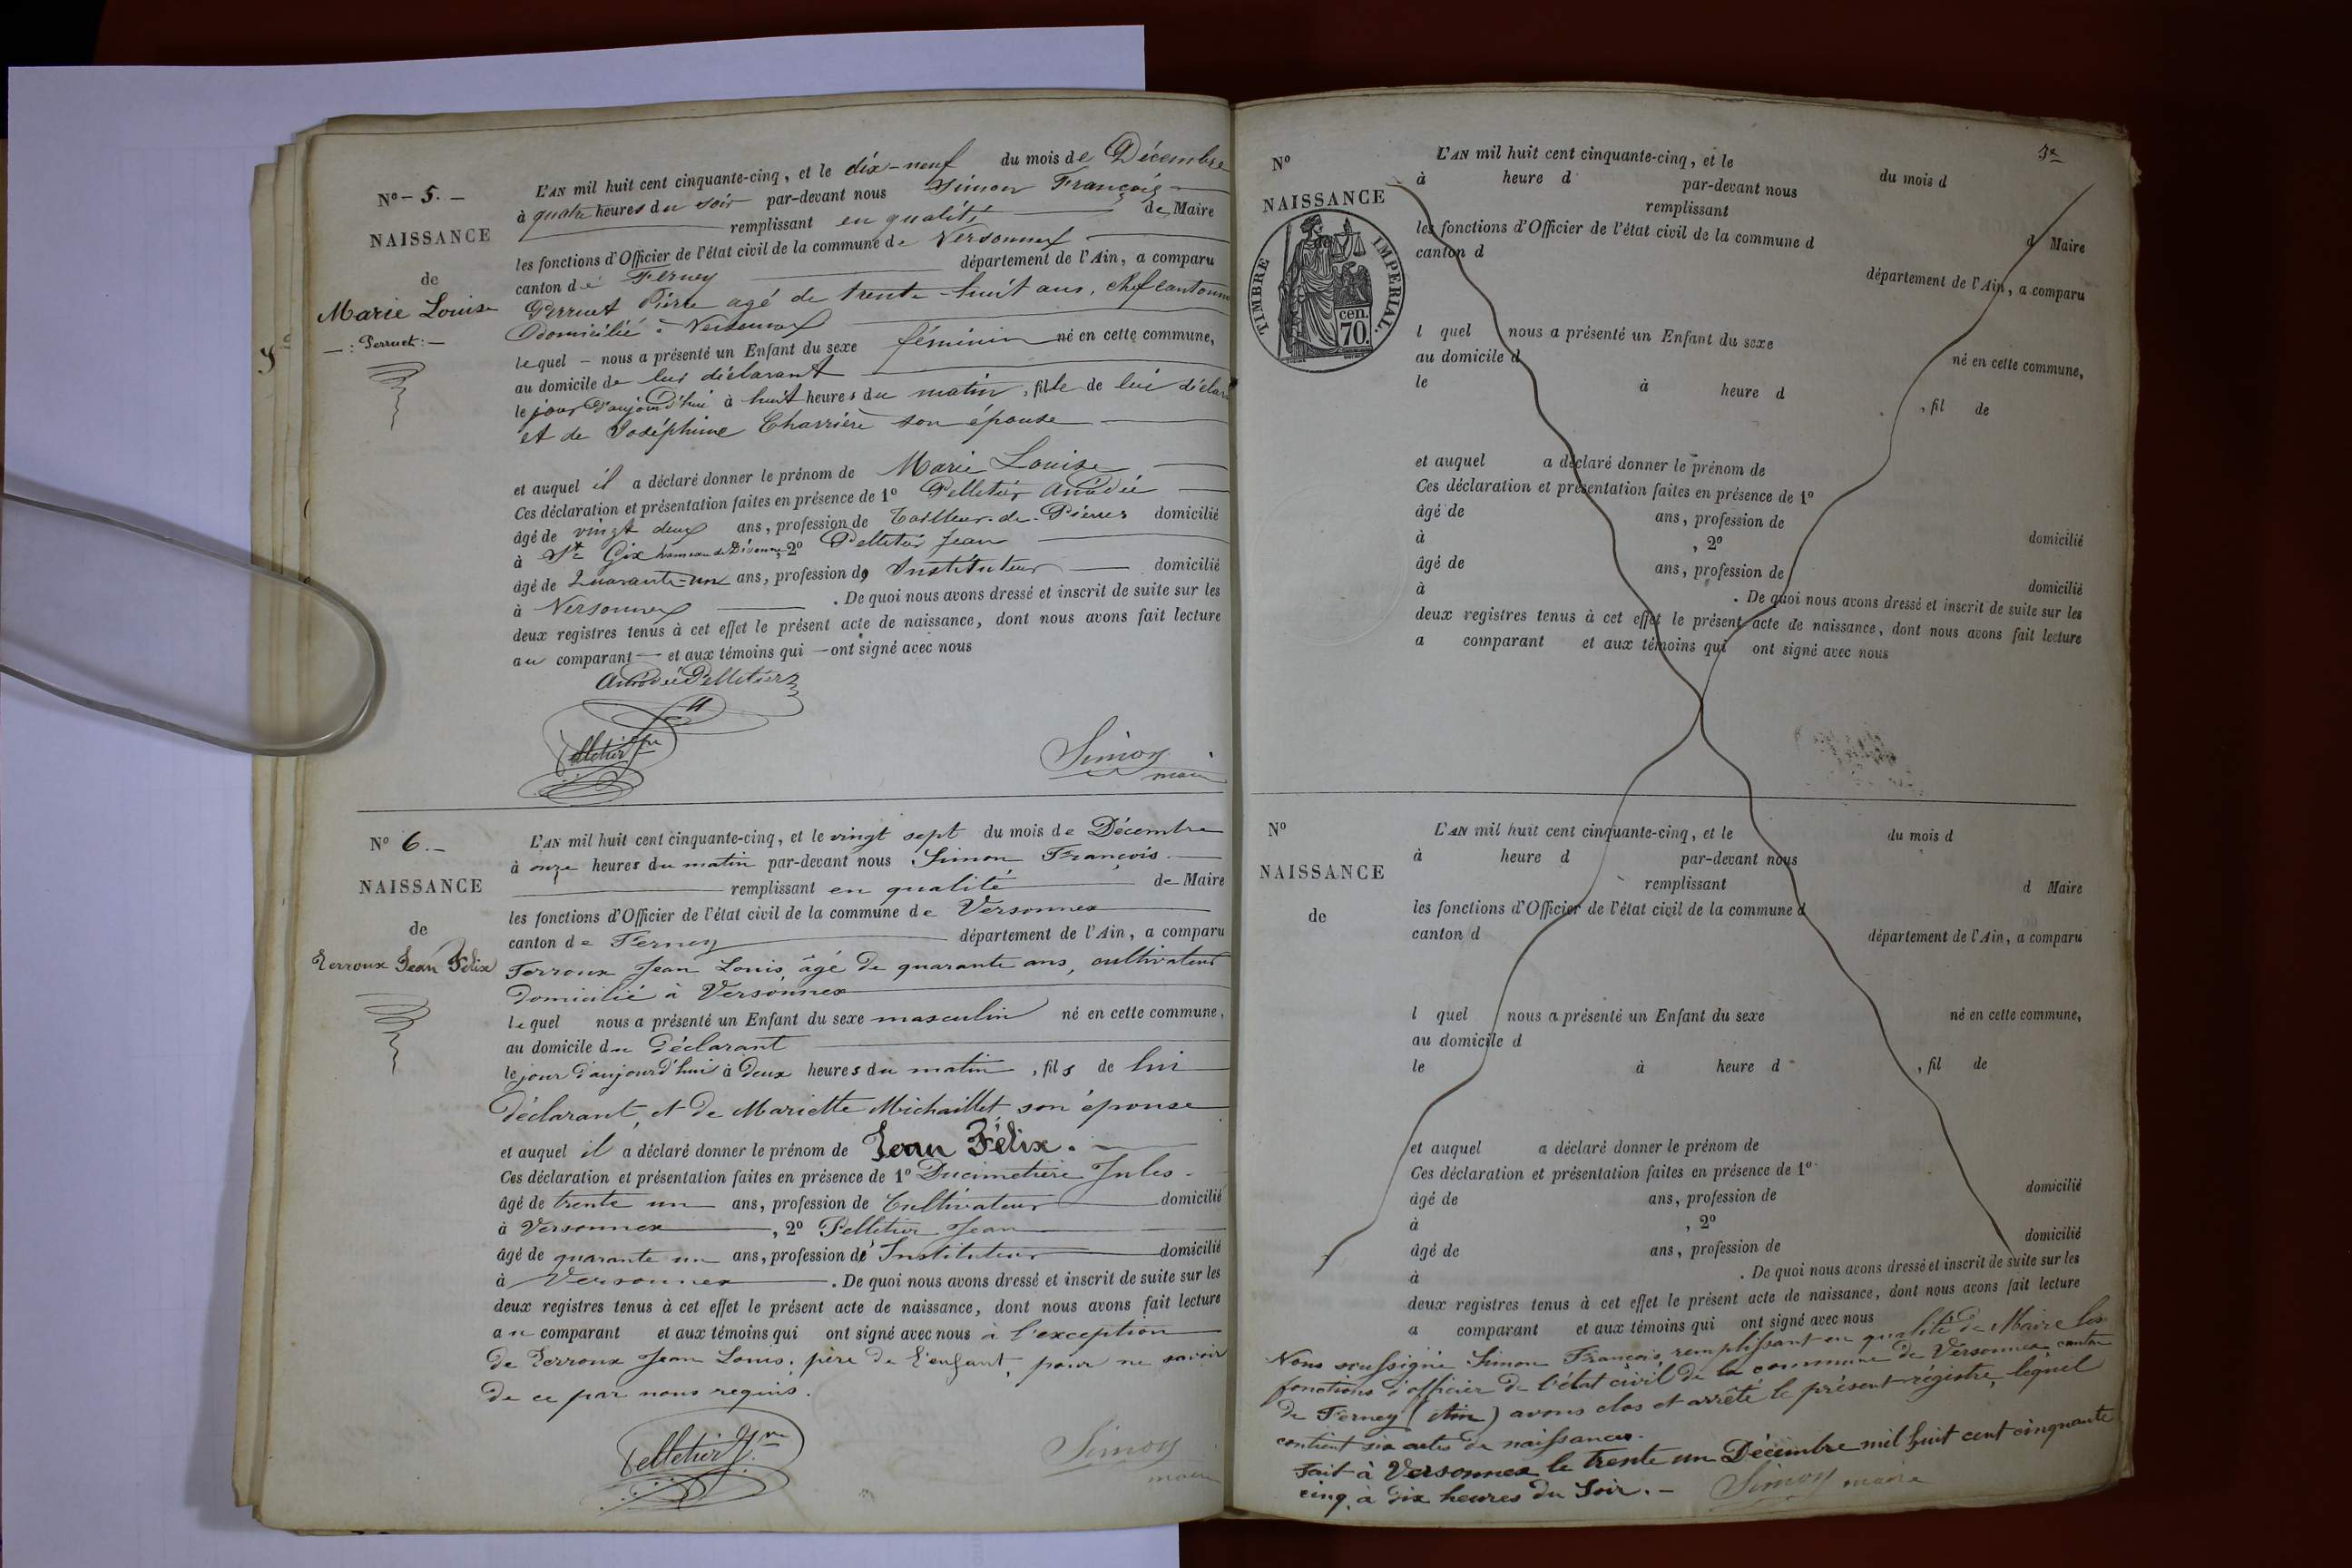 N° - 5. -
NAISSANCE
de
Marie Louise
- : Perruet : -
L'AN mil huit cent cinquante-cinq, et le dix-neuf du mois de Décembre
à quatre heures du soir par-devant nous Simon François
remplissant en qualité de Maire
les fonctions d'Officier de l'état civil de la commune de Versonnex
canton de Ferney département de l'Ain, a comparu
Perruet Pierre agé de trente-huit ans, chef cantonn
Domicilié à Versonnex
lequel - nous a présenté un Enfant du sexe féminin né en cette commune,
au domicile de lui déclarant
le jour d'aujourd'hui à huit heures du matin, fille de lui déclar
et de Joséphine Charrière son épouse
et auquel il a déclaré donner le prénom de Marie Louise
Ces déclaration et présentation faites en présence de 1° Pelletier Amédée
âgé de vingt deux ans, profession de Tailleur de Pierres domicilié
à St Gix hameau de Divonne, 2° Pelletier Jean
âgé de Quarante-un ans, profession de Instituteur domicilié
à Versonnex . De quoi nous avons dressé et inscrit de suite sur les
deux registres tenus à cet effet le présent acte de naissance, dont nous avons fait lecture
au comparant - et aux témoins qui - ont signé avec nous
Amédée Pelletier
Pelletier Jn
Simon
maire
N° 6. -
NAISSANCE
de
Terroux Jean Félix
L'AN mil huit cent cinquante-cinq, et le vingt sept du mois de Décembre
à onze heures du matin par-devant nous Simon François
remplissant en qualité de Maire
les fonctions d'Officier de l'état civil de la commune de Versonnex
canton de Ferney département de l'Ain, a comparu
Terroux Jean Louis, âgé de quarante ans, cultivateur
domicilié à Versonnex
lequel nous a présenté un Enfant du sexe masculin né en cette commune,
au domicile du déclarant
le jour d'aujourd'hui à deux heures du matin, fils de lui
déclarant, et de Mariette Michaillet son épouse
et auquel il a déclaré donner le prénom de Jean Félix.
Ces déclaration et présentation faites en présence de 1° Ducimetière Jules
âgé de trente un ans, profession de Cultivateur domicilié
à Versonnex, 2° Pelletier Jean
âgé de quarante un ans, profession de Instituteur domicilié
à Versonnex . De quoi nous avons dressé et inscrit de suite sur les
deux registres tenus à cet effet le présent acte de naissance, dont nous avons fait lecture
au comparant et aux témoins qui ont signé avec nous à l'exception
de Terroux Jean Louis, père de l'enfant, pour ne savoir
de ce par nous requis.
Pelletier Jn
Simon
maire
N°
NAISSANCE
TIMBRE IMPERIAL.
cen.
70.
L'AN mil huit cent cinquante-cinq, et le du mois d
à heure d par-devant nous
remplissant d Maire
les fonctions d'Officier de l'état civil de la commune d
canton d département de l'Ain, a comparu
l quel nous a présenté un Enfant du sexe né en cette commune,
au domicile d
le à heure d , fil de
et auquel a déclaré donner le prénom de
Ces déclaration et présentation faites en présence de 1°
âgé de ans, profession de domicilié
à , 2°
âgé de ans, profession de domicilié
à . De quoi nous avons dressé et inscrit de suite sur les
deux registres tenus à cet effet le présent acte de naissance, dont nous avons fait lecture
a comparant et aux témoins qui ont signé avec nous
N°
NAISSANCE
de
L'AN mil huit cent cinquante-cinq, et le du mois d
à heure d par-devant nous
remplissant d Maire
les fonctions d'Officier de l'état civil de la commune d
canton d département de l'Ain, a comparu
l quel nous a présenté un Enfant du sexe né en cette commune,
au domicile d
le à heure d , fil de
et auquel a déclaré donner le prénom de
Ces déclaration et présentation faites en présence de 1°
âgé de ans, profession de domicilié
à , 2°
âgé de ans, profession de domicilié
à . De quoi nous avons dressé et inscrit de suite sur les
deux registres tenus à cet effet le présent acte de naissance, dont nous avons fait lecture
a comparant et aux témoins qui ont signé avec nous
Nous soussigné Simon François, remplissant en qualité de Maire les
fonctions d'officier de l'état civil de la commune de Versonnex canton
de Ferney (Ain) avons clos et arrêté le présent registre, lequel
contient six actes de naissances.
Fait à Versonnex le trente un Décembre mil huit cent cinquante
cinq, à dix heures du Soir. -
Simon maire